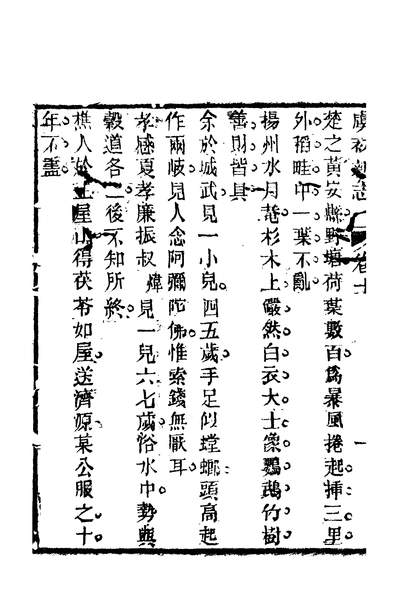 虞初新志 卷十 一
楚之黃安縣野塘荷葉數百爲暴風捲起揷三里
外稻畦中一葉不亂
揚州水月菴杉木上儼然白衣大士像鸚鵡竹樹
善財皆具
余於城武見一小兒四五歲手足似螳螂頭高起
作兩歧見人念阿彌陀佛惟索錢無厭耳
孝感夏孝廉振叔煒見一兒六七歲浴水中勢與
穀道各二後不知所終
樵人於王屋山得茯苓如屋送濟源某公服之十
年不盡